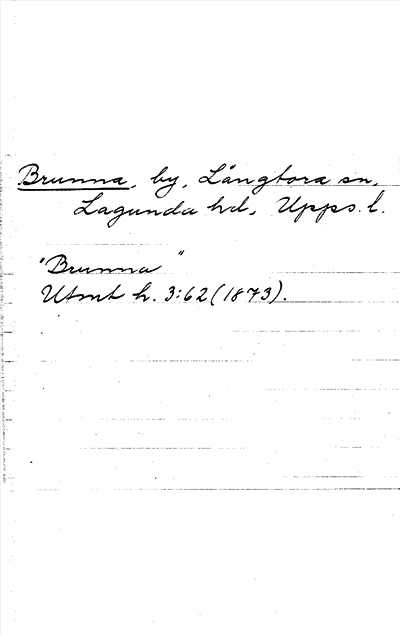 Brunna, by, Långtora sn,
Lagunda hd, Upps. l.
"Brunna"
Utmt h. 3:62 (1873).